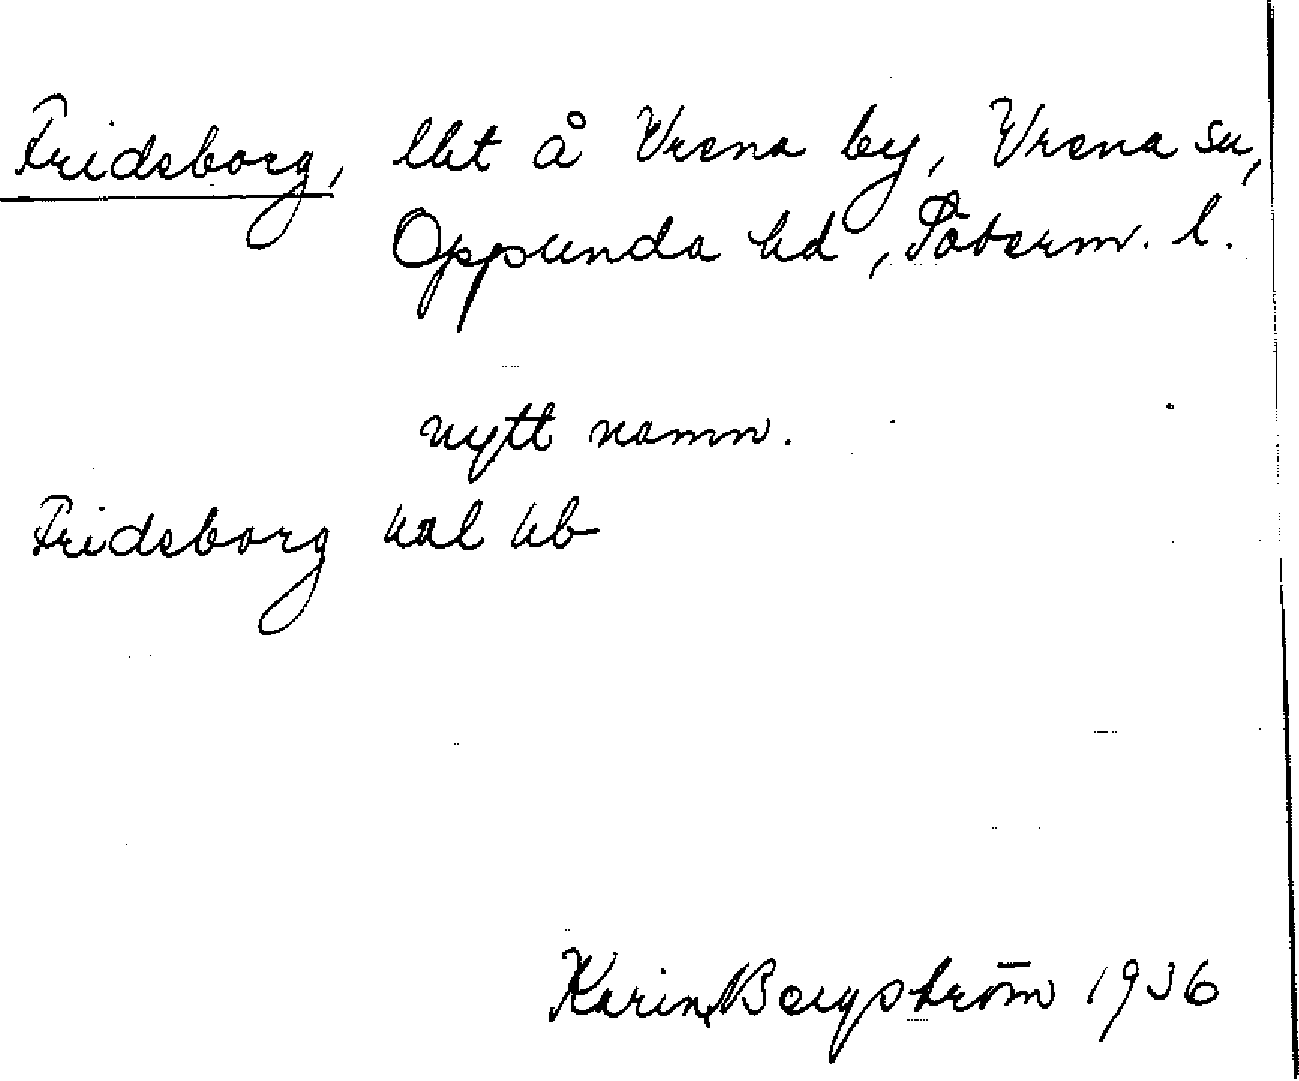 Fridsborg, lht å Vrena by, Vrena sn,
Oppunda hd, Söderm. l.
nytt namn.
Fridsborg kb
Karin Bergström 1936